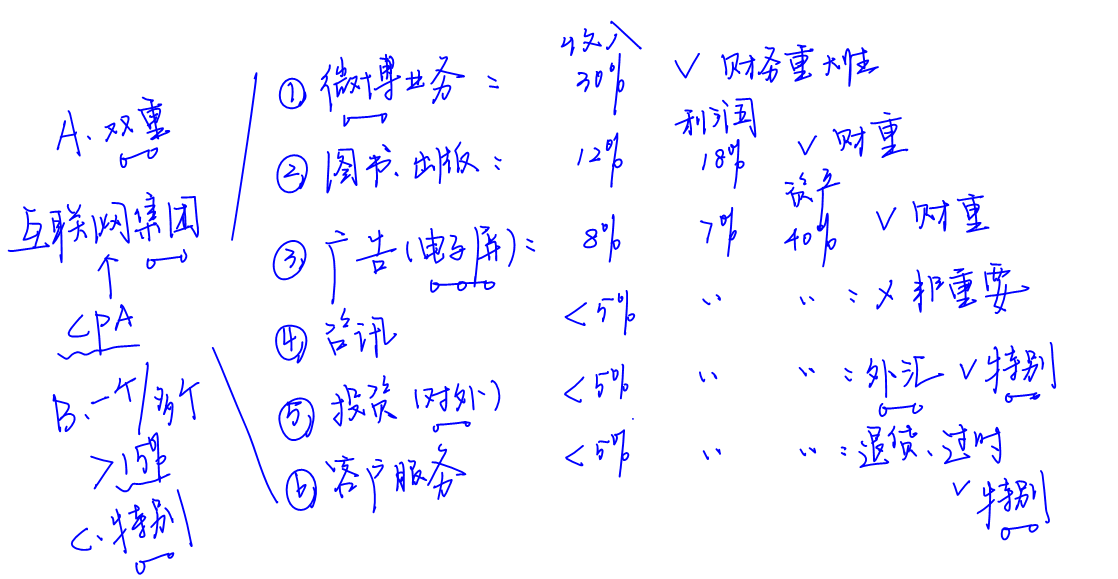 A. 双重
互联网集团
CPA
B. 一个/多个
>15%
C. 特别
收入
① 微博业务: 30% √ 财务重大性
利润
② 图书、出版: 12% 18% √ 财重
资产
③ 广告(电子屏): 8% 7% 40% √ 财重
④ 咨讯 <5% 〃 〃 : × 非重要
⑤ 投资(对外) <5% 〃 〃 : 外汇 √ 特别
⑥ 客户服务 <5% 〃 〃 : 退货、过时
√ 特别